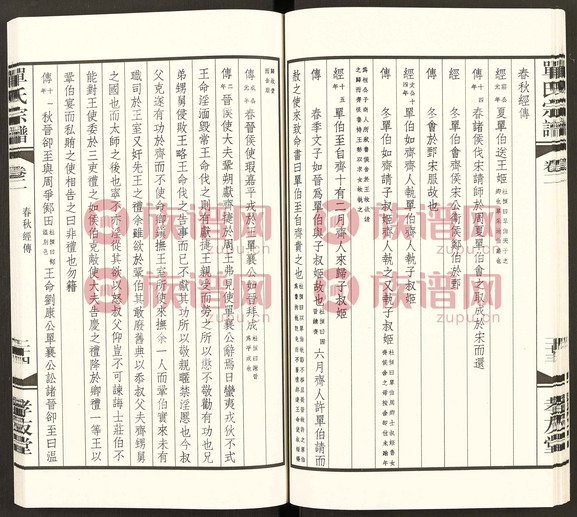 單氏宗譜
卷二
春秋經傳
孝友堂
春秋經傳
經 莊公元年 夏單伯送王姬
傳 十四年 春諸侯伐宋請師於周夏單伯會之取成於宋而還
冬會於鄄宋服故也
冬單伯會齊侯宋公衛侯鄭伯於鄄
經 文公十四年 單伯如齊齊人執單伯齊人執子叔姬
傳 冬單伯如齊請子叔姬齊人執之又執子叔姬
經 十五年 單伯至自齊十有二月齊人來歸子叔姬
傳 春季文子如晉為單伯與子叔姬故也 六月齊人許單伯請而
赦之使來致命書曰單伯至自齊貴之也
傳 成公元年 春晉侯使瑕嘉平戎於王單襄公如晉拜成
傳 二年 晉侯使大夫鞏朔獻齊捷於周王弗見使單襄公辭焉曰蠻夷戎狄不式
王命淫湎毀常王命伐之則有獻捷王親受而勞之所以懲不敬勸有功也兄
弟甥舅侵敗王略王命伐之告事而已不獻其功所以敬親暱禁淫慝也今叔
父克遂有功於齊而不使命卿鎮撫王室所使來撫余一人而鞏伯實來未有
職司於王室又奸先王之禮余雖欲於鞏伯其敢廢舊典以忝叔父夫齊甥舅
之國也而太師之後也寧不亦淫從其欲以怒叔父抑豈不可諫誨士莊伯不
能對王使委於三吏禮之如侯伯克敵使大夫告慶之禮降於卿禮一等王以
鞏伯宴而私賄之使相告之曰非禮也勿籍
傳 十一年 秋晉郤至與周爭鄇田 王命劉康公單襄公訟諸晉郤至曰溫
單氏宗譜
卷二
春秋經傳
二十四
孝友堂
族谱网
zupu.cn